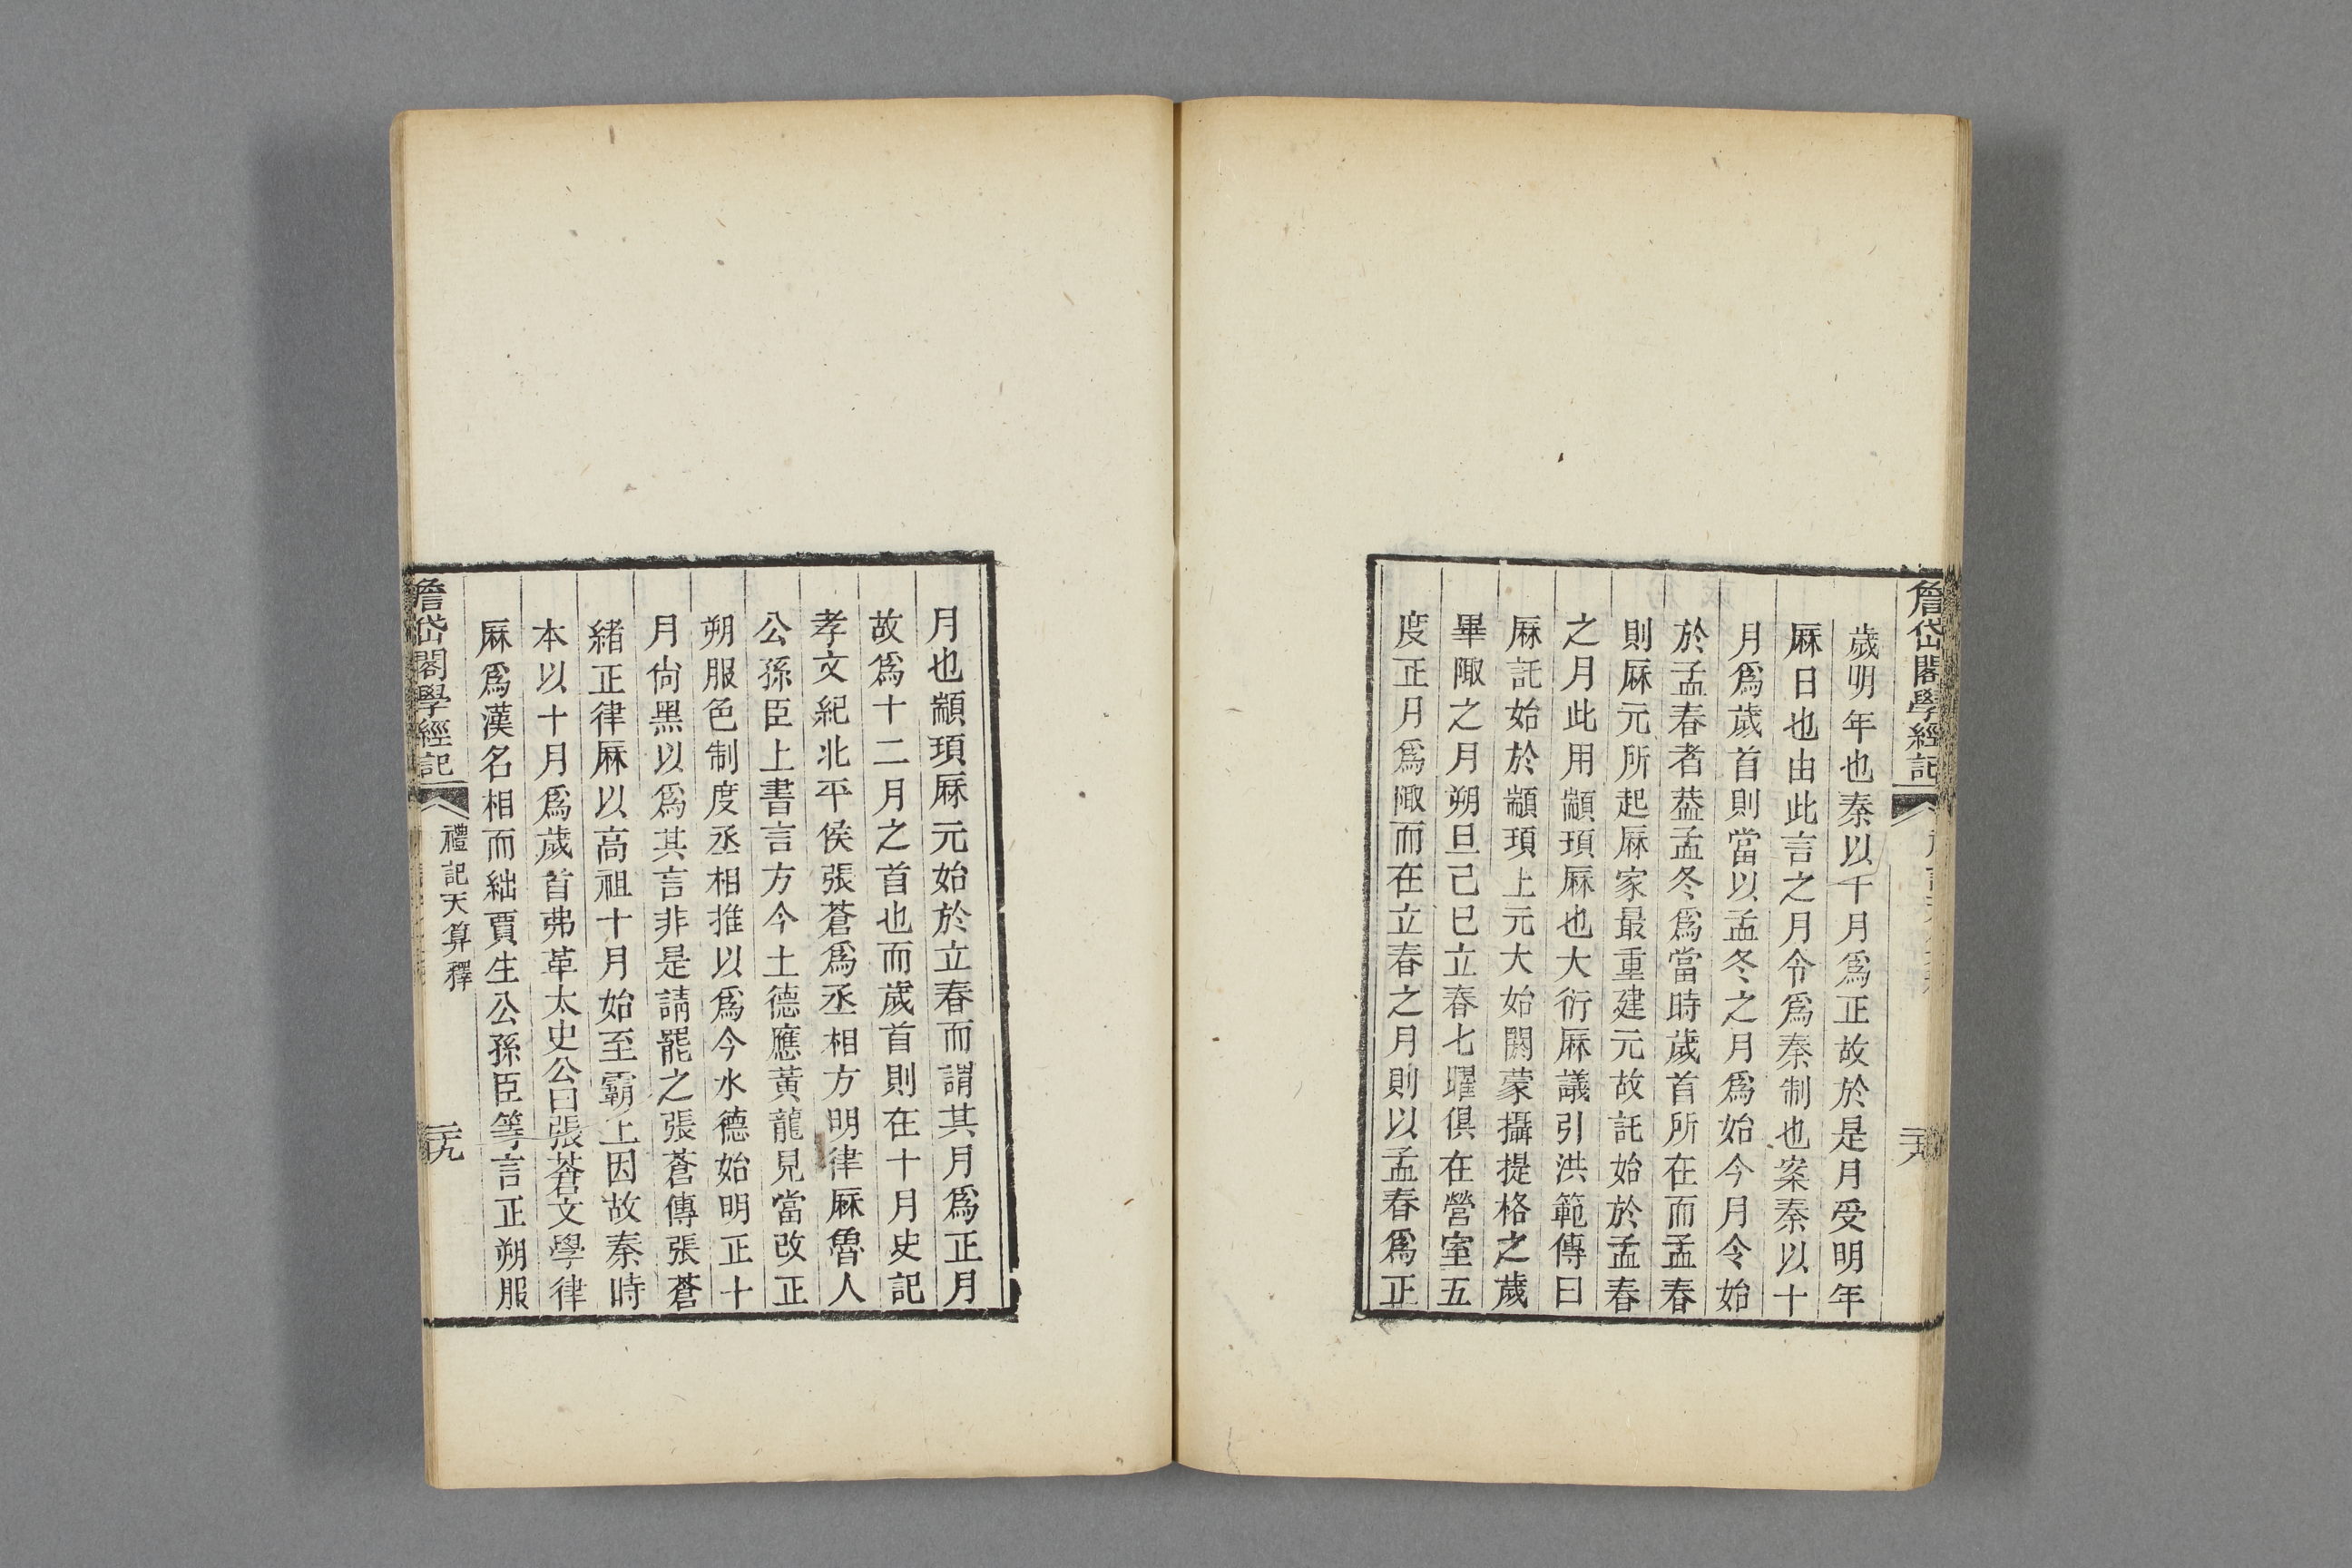 詹岱閣學經記
歲明年也秦以十月爲正故於是月受明年
厤日也由此言之月令爲秦制也案秦以十
月爲歲首則當以孟冬之月爲始今月令始
於孟春者葢孟冬爲當時歲首所在而孟春
則厤元所起厤家最重建元故託始於孟春
之月此用顓頊厤也大衍厤議引洪範傳曰
厤託始於顓頊上元大始閼蒙攝提格之歲
畢陬之月朔旦己巳立春七曜俱在營室五
度正月爲陬而在立春之月則以孟春爲正
月也顓頊厤元始於立春而謂其月爲正月
故爲十二月之首也而歲首則在十月史記
孝文紀北平侯張蒼爲丞相方明律厤魯人
公孫臣上書言方今土德應黃龍見當改正
朔服色制度丞相推以爲今水德始明正十
月尙黑以爲其言非是請罷之張蒼傳張蒼
緒正律厤以高祖十月始至霸上因故秦時
本以十月爲歲首弗革太史公曰張蒼文學律
厤爲漢名相而絀賈生公孫臣等言正朔服
詹岱閣學經記
禮記天算釋
二十九